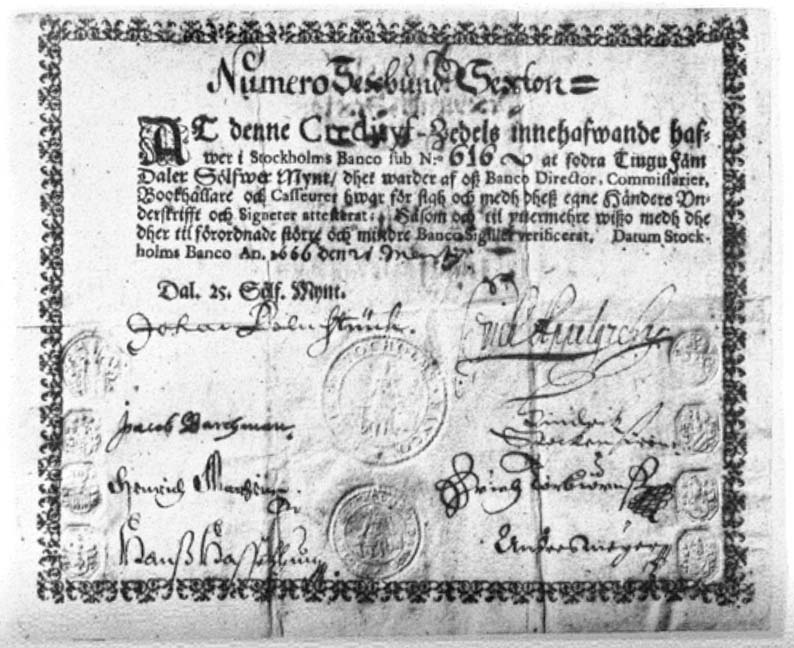 Numero Sexhund. Sexton =
AT denne Credityf-Zedels innehafwande haf-
wer i Stockholms Banco sub N:o 616 at fodra Tiugu Fäm
Daler Sölfwer Mynt/ dhet warder af oß Banco Director, Commissarier,
Bookhållare och Casseurer hwar för sigh och medh dheß egne Händers Un-
derskrifft och Signeter attesterat; Såsom och til yttermehre wißo medh dhe
dher til förordnade större och mindre Banco Sigiller verificerat, Datum Stock-
holms Banco An. 1666 den 21 Martij
Dal. 25. Sölf. Mynt.
Johan
STOCKHOLMS BANCO
Jacob
Hinrich
Erich
Hanß
Anders